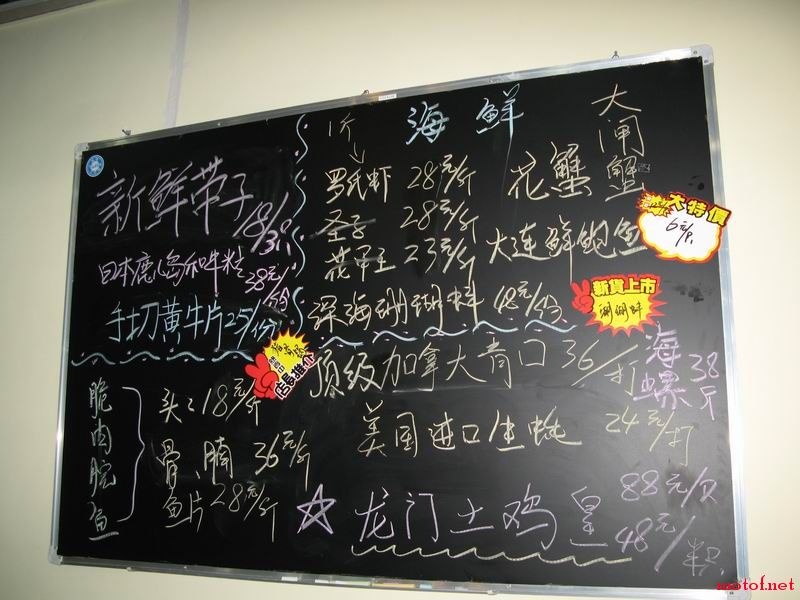 新鲜带子18/3只
日本鹿儿岛和牛粒38元/份
手切黄牛片25/份
店长推介
脆肉脘鱼
头: 18元/斤
骨、腩 36元/斤
鱼片 28元/斤
海鲜
1斤
罗氏虾 28元/斤
圣子 28元/斤
花甲王 23元/斤
深海珊瑚蚌 48元/份
大闸蟹
花蟹
大连鲜鲍鱼
大特價
6元/只
新貨上市
珊瑚蚌
顶级加拿大青口 36/打
海螺 38/斤
美国进口生蚝 24元/打
☆龙门土鸡皇 88元/只
48元/半只
motof.net